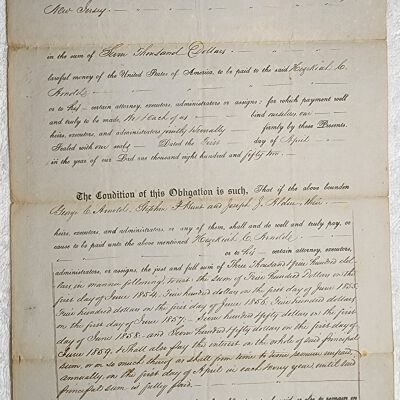 New Jersey
in the sum of Seven Thousand Dollars
lawful money of the United States of America, to be paid to the said Hezekiah C.
Arnold
or to his certain attorney, executors, administrators or assigns: for which payment well
and truly to be made, We & each of us bind ourselves our
heirs, executors, and administrators jointly & severally firmly by these Presents.
Sealed with our seals Dated the First day of April
in the year of our Lord one thousand eight hundred and fifty two.
The Condition of this Obligation is such, That if the above bounden
George C. Arnold, Stephen and Joseph J. Alden, their
heirs, executors, and administrators, or any of them, shall and do well and truly pay, or
cause to be paid unto the above mentioned Hezekiah C. Arnold,
or to his certain attorney, executors,
administrators, or assigns, the just and full sum of Three Thousand Five Hundred dol-
lars in manner following, to wit: the sum of Five Hundred Dollars on the
first day of June 1854, Five hundred dollars on the first day of June 1855
Five hundred dollars on the first day of June 1856, Five hundred dollars
on the first day of June 1857, Seven hundred & fifty dollars on the first
day of June 1858 and Seven Hundred & fifty dollars on the first day of
June 1859, & shall also pay the interest on the whole of said principal
sum, or so much thereof as shall from time to time remain unpaid,
annually, on the first day of April in each & every year, until said
principal sum is fully paid.